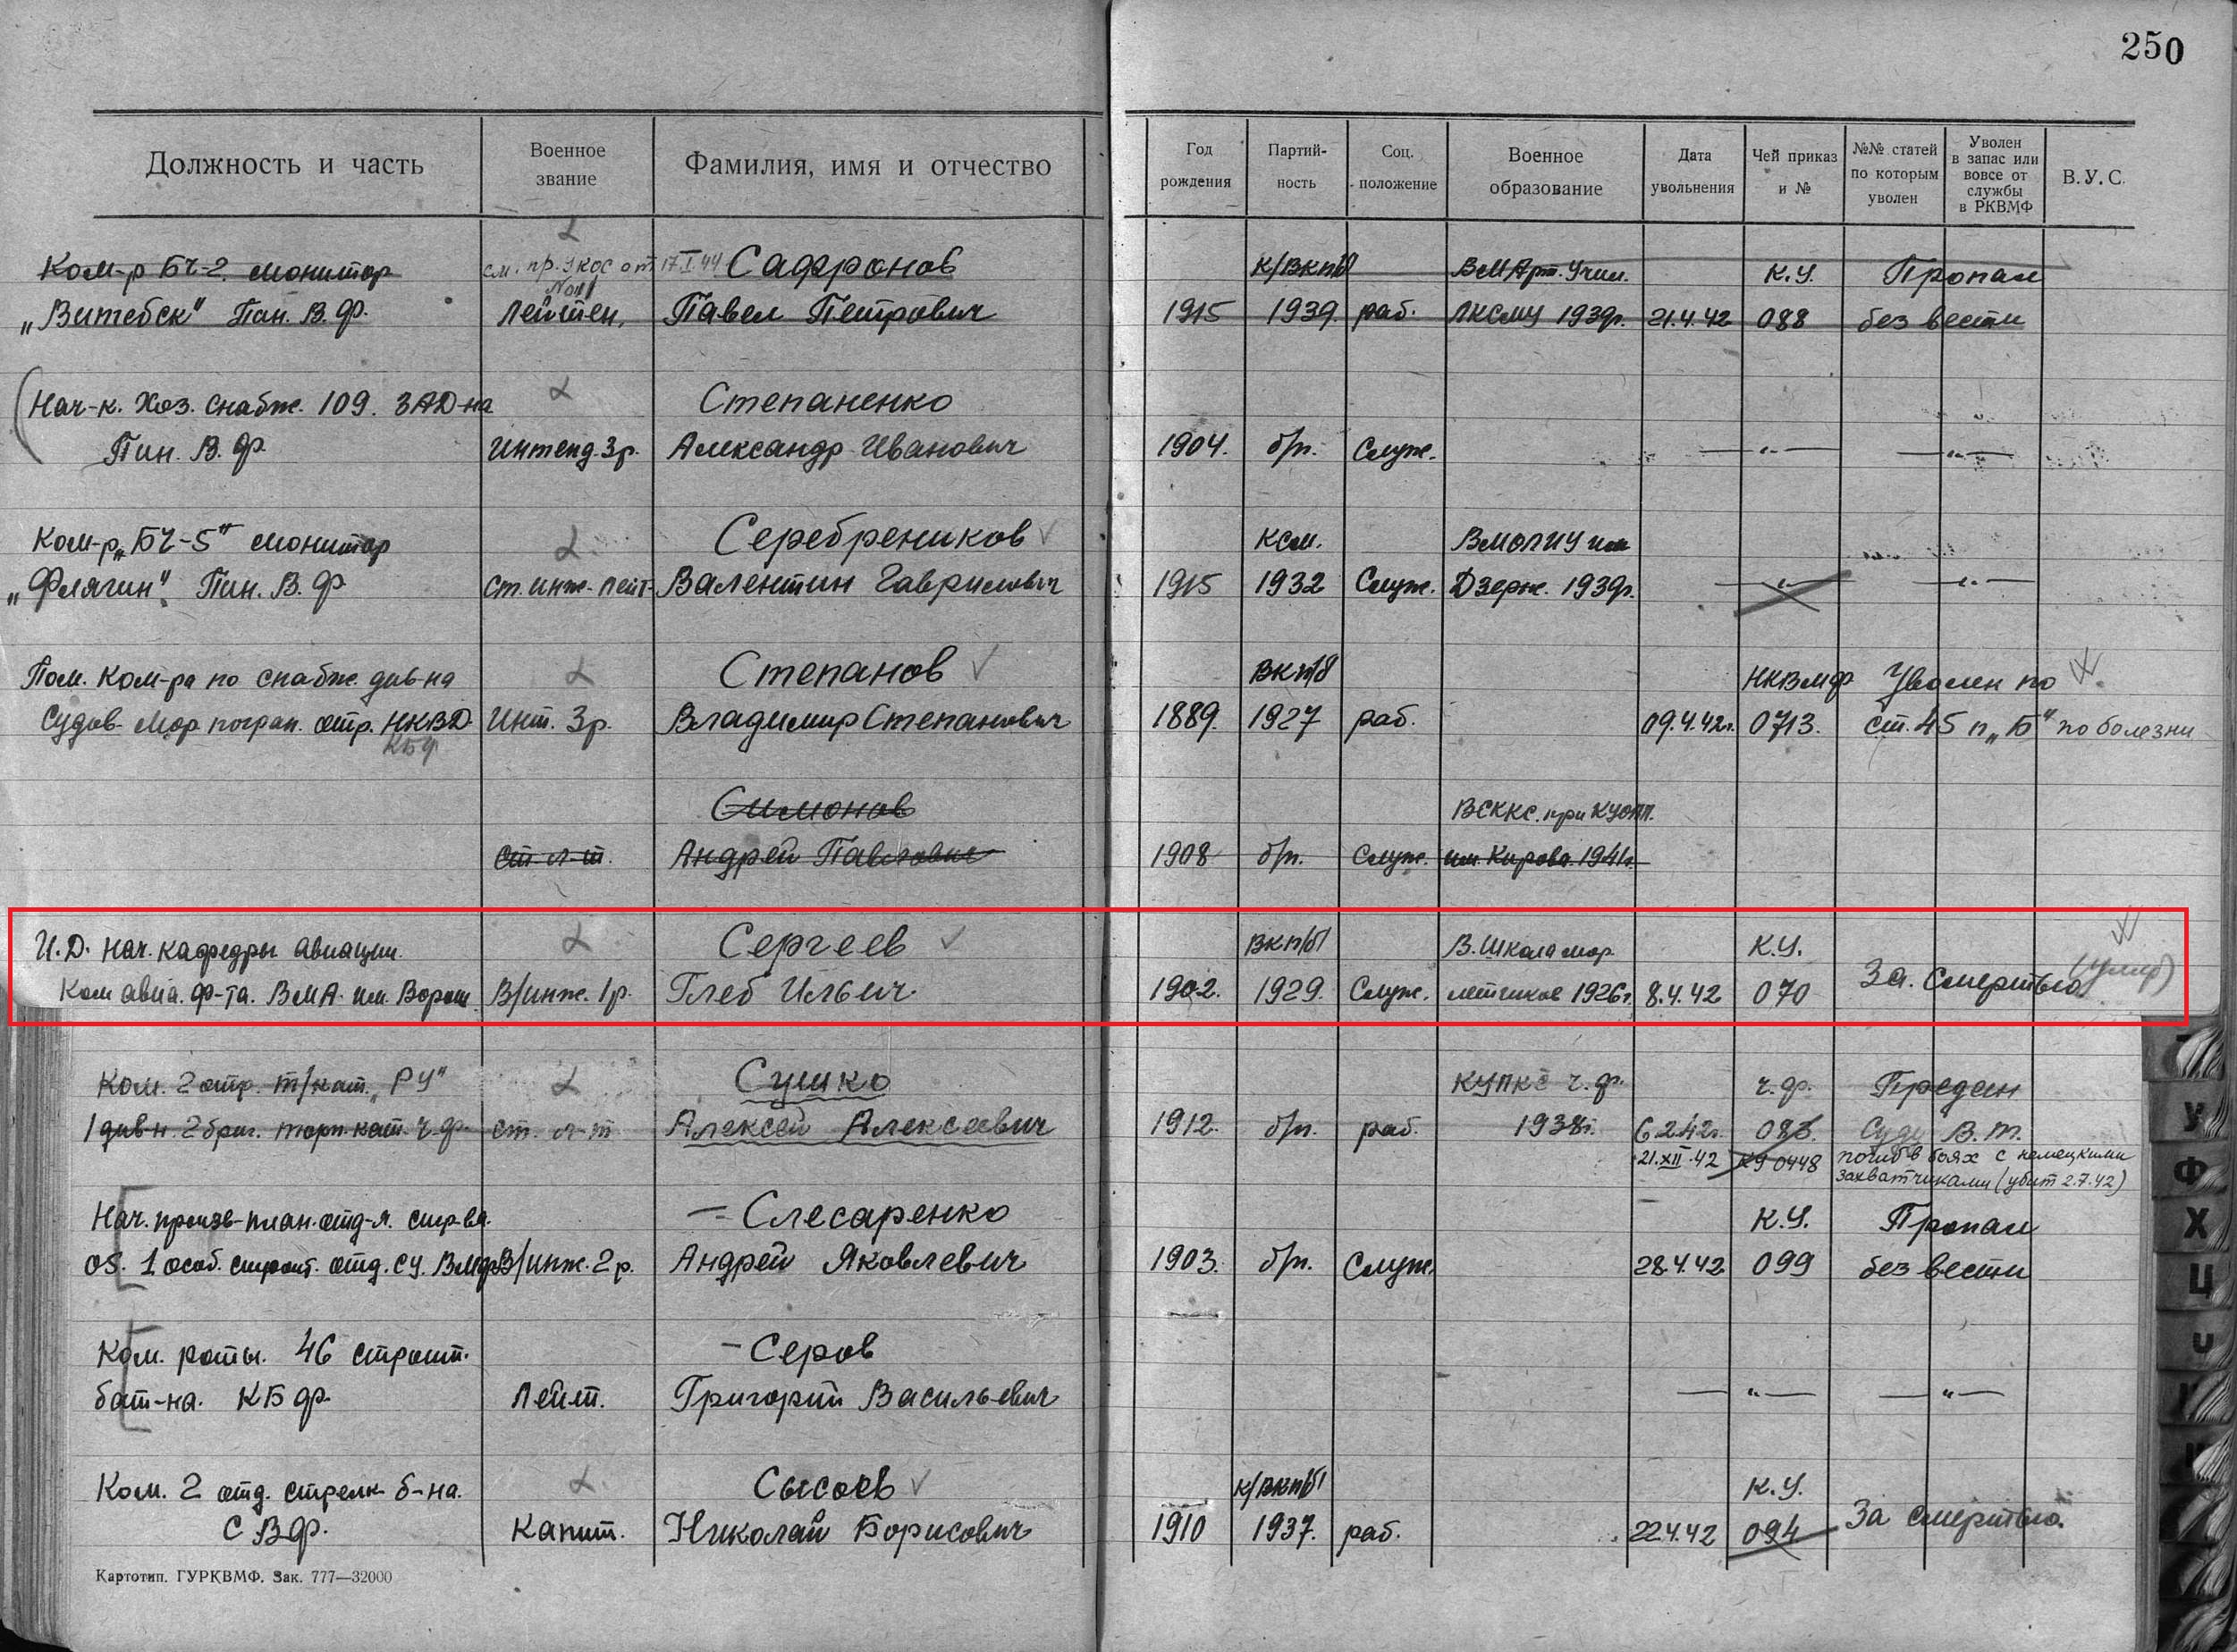 250
Должность и часть
Военное звание
Фамилия, имя и отчество
Год рождения
Партий-ность
Соц. положение
Военное образование
Дата увольнения
Чей приказ и №
№№ статей по которым уволен
Уволен в запас или вовсе от службы в РКВМФ
В.У.С.
Ком-р БЧ-2 монитор см. пр. УКОС от 17.I.44 Сафронов К/ВКП/б ВМАрт. Учил. К.У. Пропал
„Витебск" Пин. В. Ф. Лейтен. Павел Петрович 1915 1939 раб. ЛКСМУ 1939г. 21.4.42 088 без вести
Нач-к. Хоз. Снабж. 109. ЗАД-на Степаненко
Пин. В. Ф. Интенд. 3р. Александр Иванович 1904. б/п. Служ. —"— —"—
Ком-р „БЧ-5" монитор Серебреников Ксм. ВМОЛИУ им
„Флягин". Пин. В. Ф Ст. инж. лейт- Валентин Гаврилович 1915 1932 Служ. Дзерж. 1939г. —"— —"—
Пом. Ком-ра по снабж. див-на Степанов ВКП/б НКВМФ Уволен по
Судов Мор погран. отр. НКВД Инт. 3р. Владимир Степанович 1889. 1927 раб. 09.4.42г. 0713. ст. 45 п „Б" по болезни
КБФ
Симонов ВСККС. при КУОПП.
ст л-т. Андрей Павлович 1908 б/п. Служ. им. Кирова. 1941г.
И.Д. Нач. кафедры авиации. Сергеев ВКП/б/ В. Школа мор. К.У.
Ком авиа. ф-та. ВМА им. Ворош. В/инж. 1р. Глеб Ильич 1902. 1929. Служ. летчиков 1926г. 8.4.42 070 За. Смертью (умер)
Ком. 2 отр. т/кат. „РУ" Сушко КУПКС ч. ф. ч. ф. Предан
1 див-н. 2 бриг. торп. кат. ч. ф. ст. л-т Алексей Алексеевич 1912. б/п. раб. 1938г. 6.2.42г. 083. Суду В. Т.
21.XII.42 КУ 0448 погиб в боях с немецкими
захватчиками (убит 2.7.42)
Нач. произв-план. отд-я. стр-ва. — Слесаренко К.У. Пропал
OS. 1 особ. строит. отд. СУ. ВМФ В/инж. 2р. Андрей Яковлевич 1903. б/п. Служ. 28.4.42 099 без вести
Ком. роты. 46 строит. — Серов
бат-на. КБФ. Лейт. Григорий Васильевич —"— —"—
Ком. 2 отд. стрелк б-на. Сысоев К/ВКП/б/ К.У.
СВФ. Капит. Николай Борисович 1910 1937. раб. 22.4.42 094 За смертью.
Картотип. ГУРКВМФ. Зак. 777—32000
У
Ф
Х
Ц